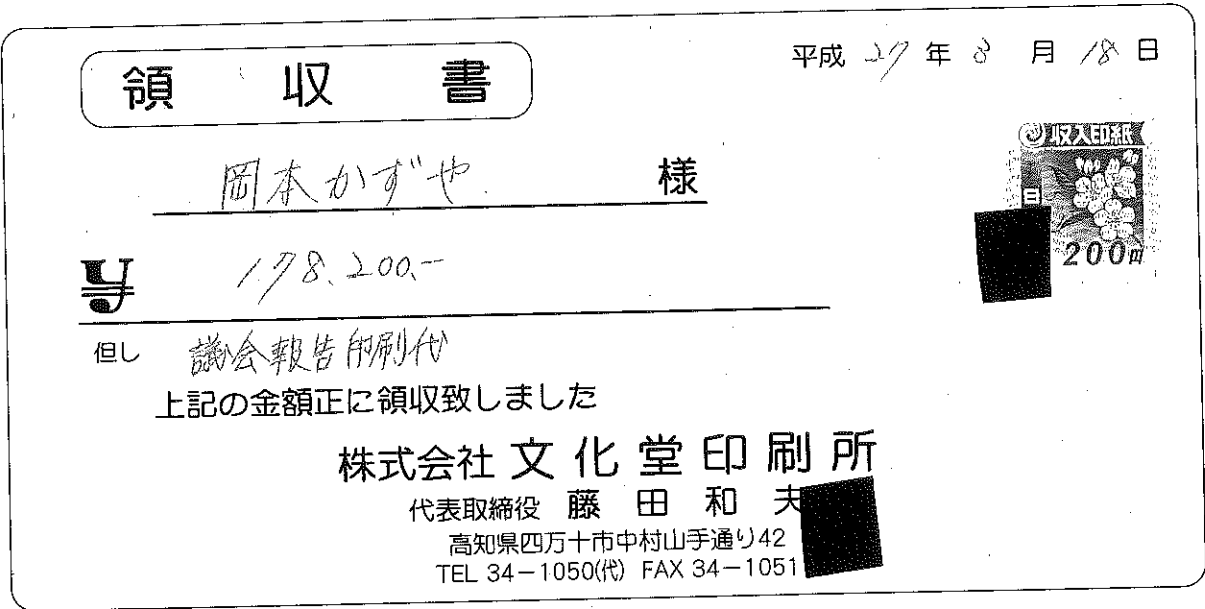 平成 27 年 3 月 18 日
領収書
収入印紙
200円
岡本かずや 様
¥ 178,200.-
但し 議会報告印刷代
上記の金額正に領収致しました
株式会社 文化堂印刷所
代表取締役 藤田和夫
高知県四万十市中村山手通り42
TEL 34-1050(代) FAX 34-1051